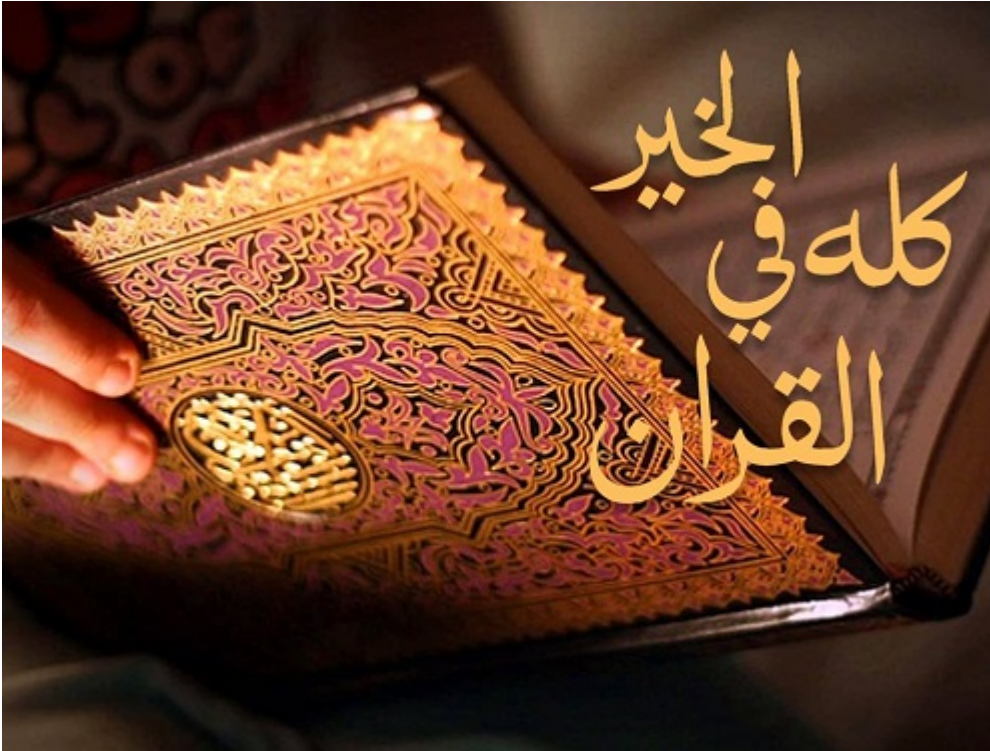 الخير
كله في
القران